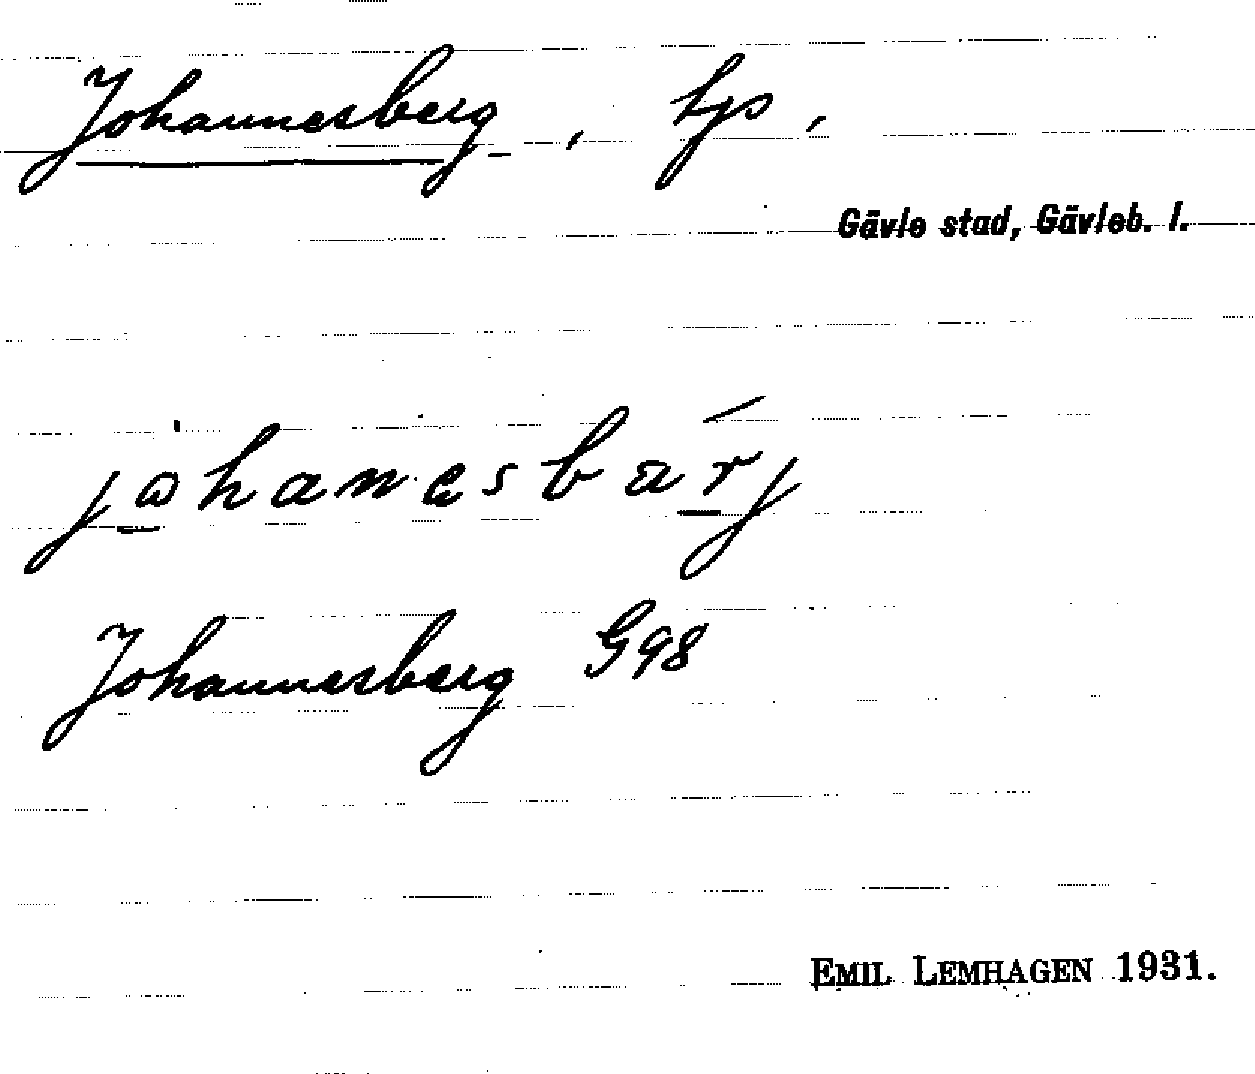 Johannesberg, lgs,
Gävle stad, Gävleb. l.
johanesbärj
Johannesberg G98
EMIL LEMHAGEN 1931.